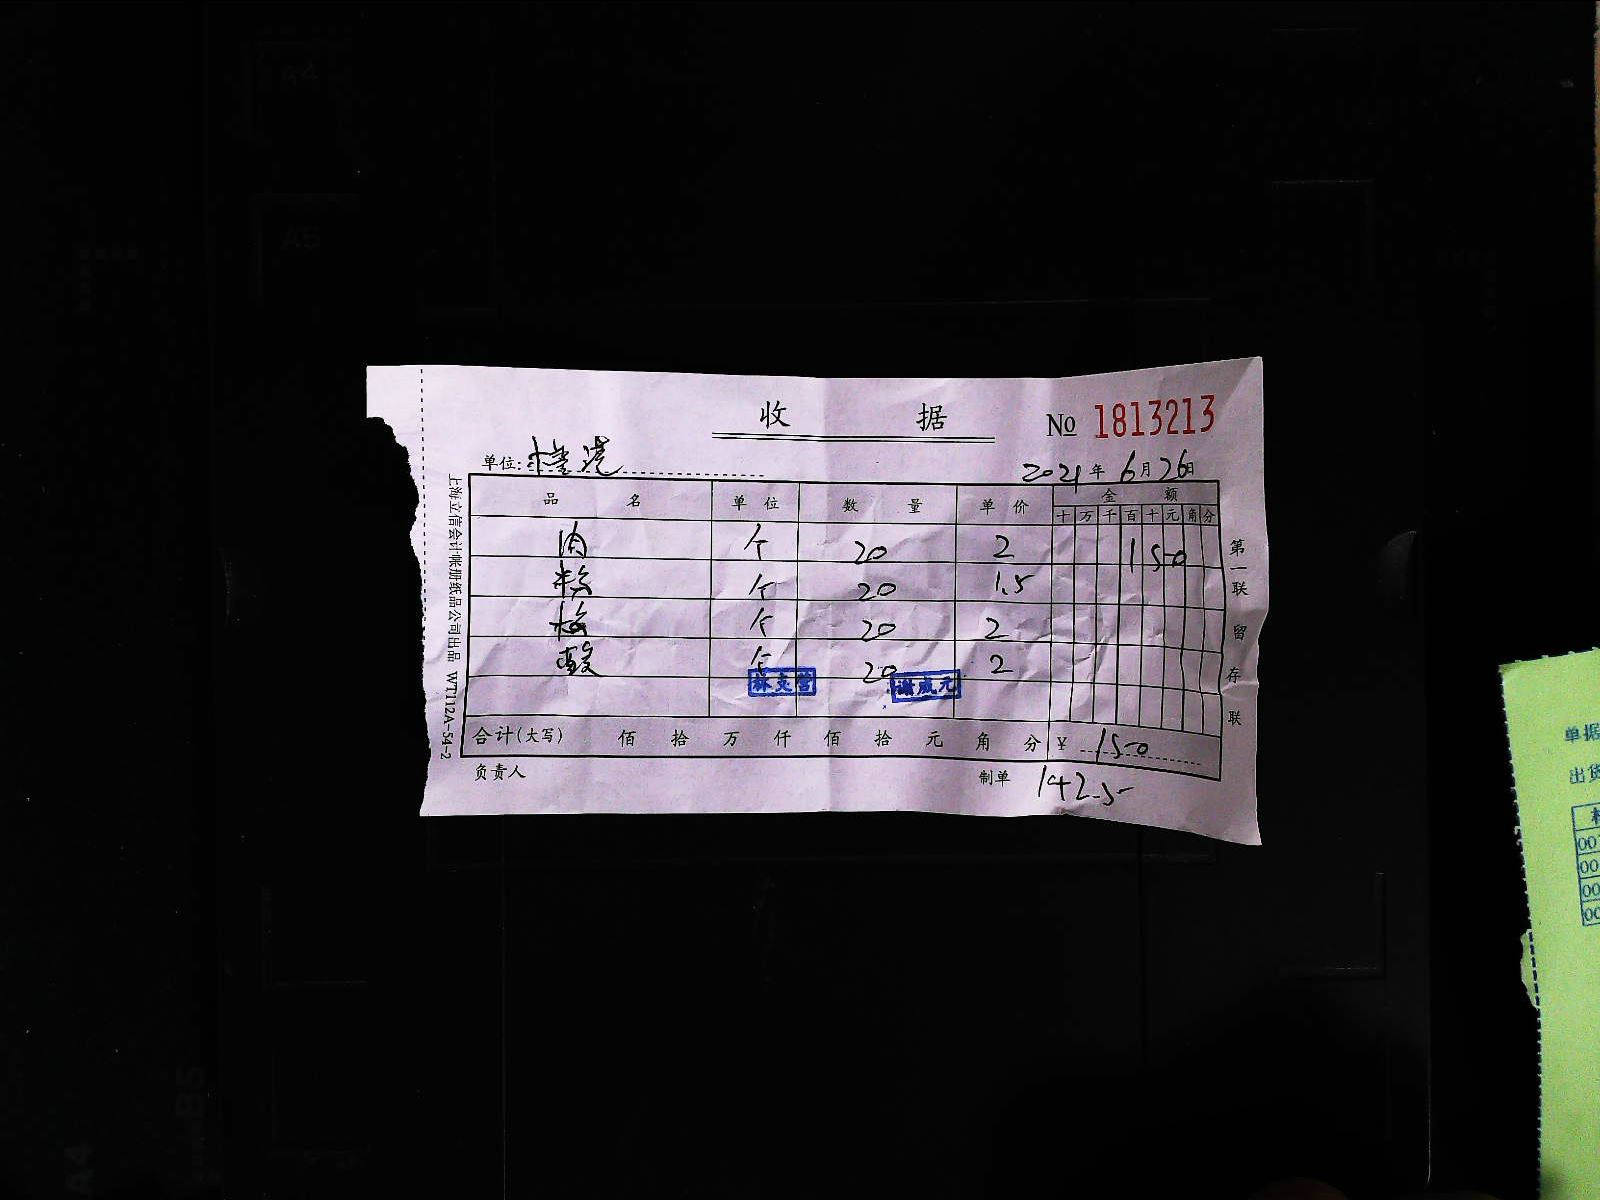 收 据
No 1813213
单位:
2021年6月26日
品 名 单位 数 量 单价 金 额
十 万 千 百 十 元 角 分
肉 个 20 2 150
个 20 1.5
梅 个 20 2
酸 个 20 2
谢成元
合计(大写) 佰 拾 万 仟 佰 拾 元 角 分 ¥ 150
负责人 制单 142.5
第一联 留存联
上海立信会计帐册纸品公司出品 WT112A-54-2
单据
出货
A5
A4
B5